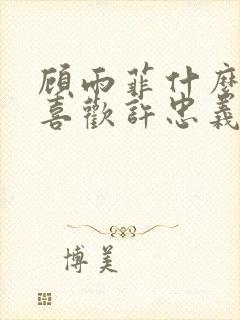 顾雨菲什麼
喜歡許忠義
博美